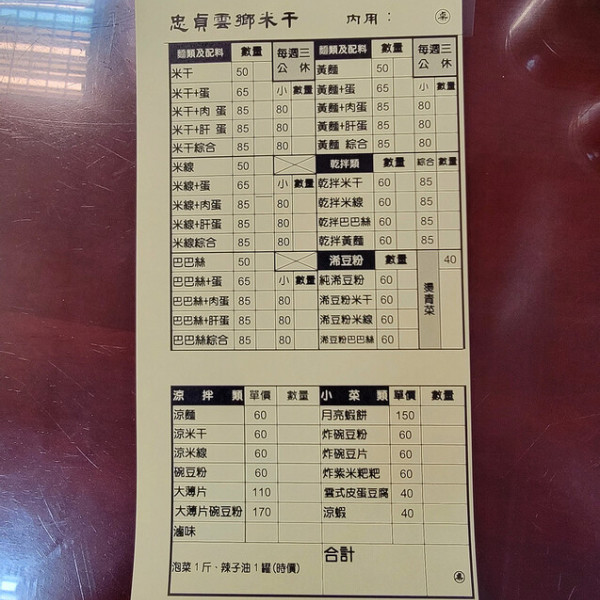 忠貞雲鄉米干 內用： 桌
麵類及配料 數量 每週三公休 麵類及配料 數量 每週三公休
米干 50 黃麵 50
米干+蛋 65 小 數量 黃麵+蛋 65 小 數量
米干+肉 蛋 85 80 黃麵+肉蛋 85 80
米干+肝 蛋 85 80 黃麵+肝蛋 85 80
米干綜合 85 80 黃麵 綜合 85 80
米線 50 乾拌類 數量 綜合 數量
米線+蛋 65 小 數量 乾拌米干 60 85
米線+肉蛋 85 80 乾拌米線 60 85
米線+肝蛋 85 80 乾拌巴巴絲 60 85
米線綜合 85 80 乾拌黃麵 60 85
巴巴絲 50 浠豆粉 數量 燙青菜 40
巴巴絲+蛋 65 小 數量 純浠豆粉 60
巴巴絲+肉蛋 85 80 浠豆粉米干 60
巴巴絲+肝蛋 85 80 浠豆粉米線 60
巴巴絲綜合 85 80 浠豆粉巴巴絲 60
涼拌類 單價 數量 小菜類 單價 數量
涼麵 60 月亮蝦餅 150
涼米干 60 炸碗豆粉 60
涼米線 60 炸碗豆片 60
碗豆粉 60 炸紫米粑粑 60
大薄片 110 雲式皮蛋豆腐 40
大薄片碗豆粉 170 涼蝦 40
滷味
合計
泡菜1斤、辣子油1罐(時價)